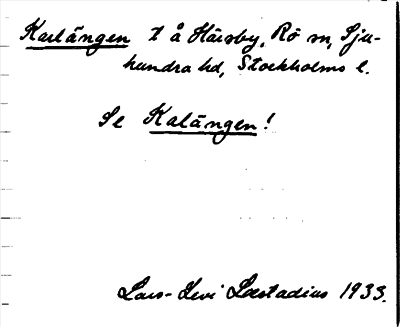 Karlängen t å Härsby, Rö sn, Sju-
hundra hd, Stockholms l.
Se Kalängen!
Lars-Levi Læstadius 1933.